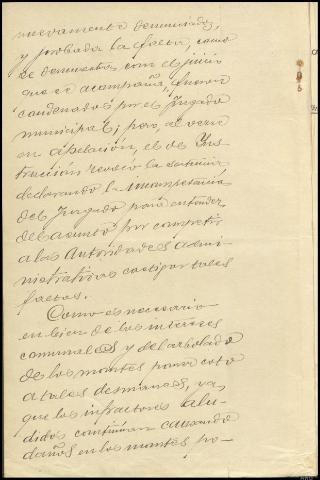 nuevamente denunciados,
y probada la falta, como
se demuestra con el juicio
que se acompaña, fueron
condenados por el Juzgado
municipal; pero, al verse
en apelación, el de Ins-
trucción revocó la sentencia
declarando la incompetencia
del Juzgado para entender
del asunto por competir
a las Autoridades admi-
nistrativas castigar tales
faltas.
Como es necesario
en bien de los intereses
comunales y del arbolado
de los montes poner coto
a tales desmanes, ya
que los infractores alu-
didos continúan causando
daños en los montes po-